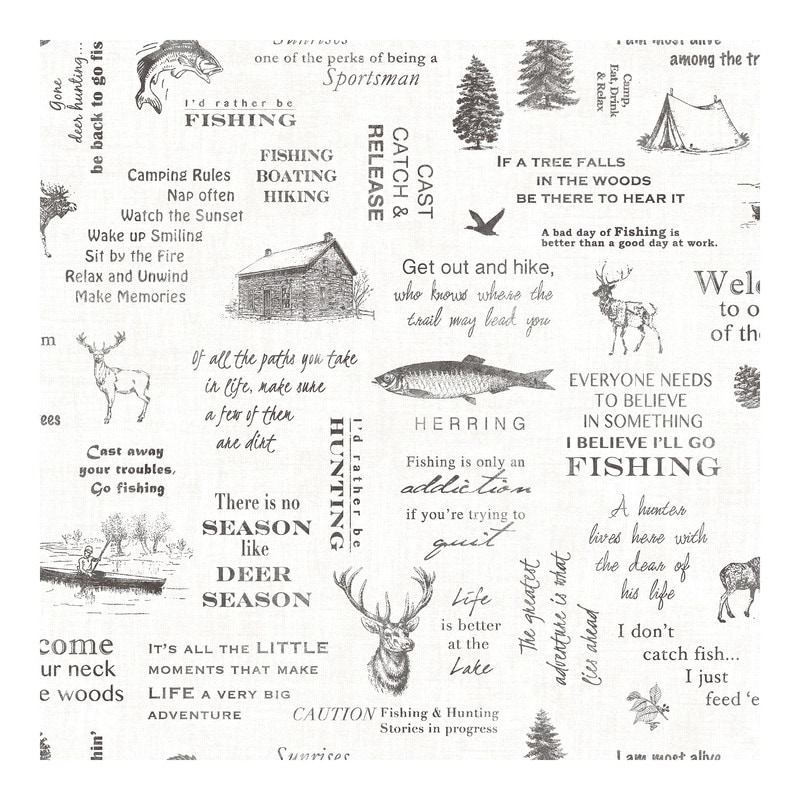 Sunrises
one of the perks of being a
Sportsman
I am most alive
among the tr
Gone
deer hunting...
be back to go fis
I'd rather be
FISHING
Camp,
Eat, Drink
& Relax
FISHING
BOATING
HIKING
CAST
CATCH &
RELEASE
IF A TREE FALLS
IN THE WOODS
BE THERE TO HEAR IT
Camping Rules
Nap often
Watch the Sunset
Wake up Smiling
Sit by the Fire
Relax and Unwind
Make Memories
A bad day of Fishing is
better than a good day at work.
Get out and hike,
who knows where the
trail may lead you
Welc
to o
of th
m
ees
Of all the paths you take
in life, make sure
a few of them
are dirt
HERRING
EVERYONE NEEDS
TO BELIEVE
IN SOMETHING
I BELIEVE I'LL GO
FISHING
Cast away
your troubles,
Go fishing
I'd rather be
HUNTING
Fishing is only an
addiction
if you're trying to
quit
There is no
SEASON
like
DEER
SEASON
A hunter
lives here with
the dear of
his life
The greatest
adventure is what
lies ahead
Life
is better
at the
Lake
I don't
catch fish...
I just
feed 'e
come
ur neck
e woods
IT'S ALL THE LITTLE
MOMENTS THAT MAKE
LIFE A VERY BIG
ADVENTURE
CAUTION Fishing & Hunting
Stories in progress
hin'
Sunrises
I am most alive